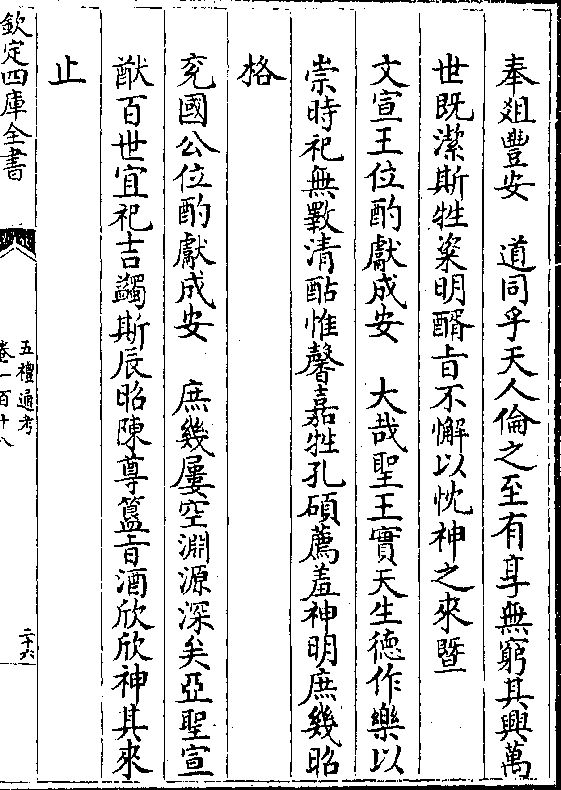 奉爼豐安　道同乎天人倫之至有享無窮其興萬
世既潔斯牲粢明醑㫖不懈以忱神之來暨
文宣王位酌獻成安　大哉聖王實天生德作樂以
崇時祀無斁清酤惟馨嘉牲孔碩薦羞神明庶幾昭
格
兖國公位酌獻成安　庶幾屢空淵源深矣亞聖宣
猷百世宜祀吉蠲斯辰昭陳尊簋㫖酒欣欣神其來
止
欽定四庫全書
五禮通考
卷一百十八
二十六